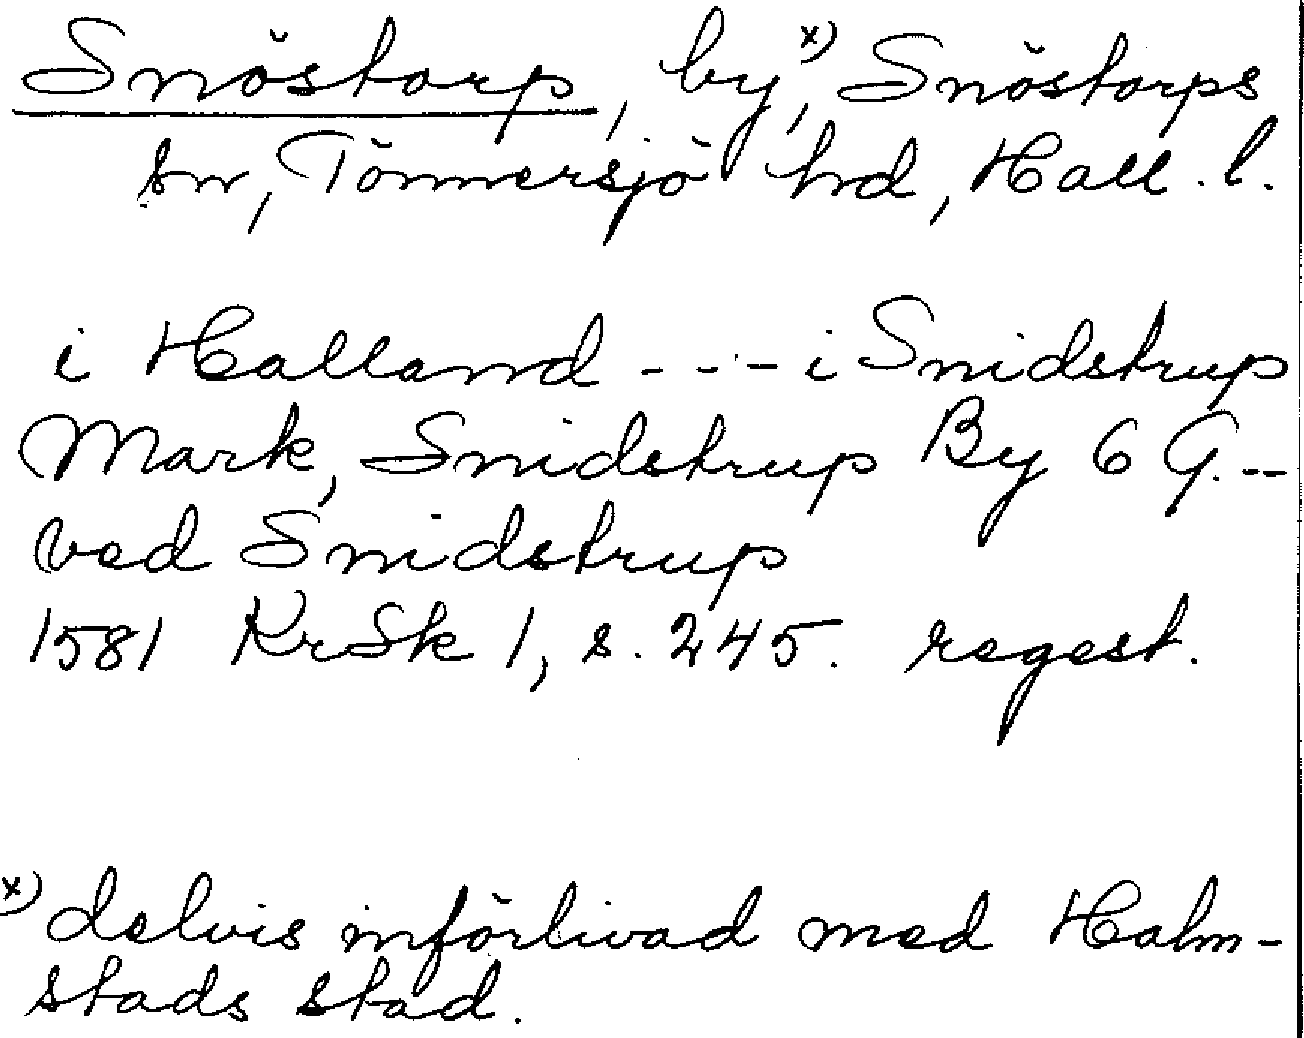 Snöstorp, by,x) Snöstorps
sn, Tönnersjö hd, Hall. l.
i Halland - - - - i Snidstrup
Mark, Snidstrup By 6 G. --
ved Snidstrup
1581 KrSk 1, s. 245. regest.
x) delvis införlivad med Halm-
stads stad.